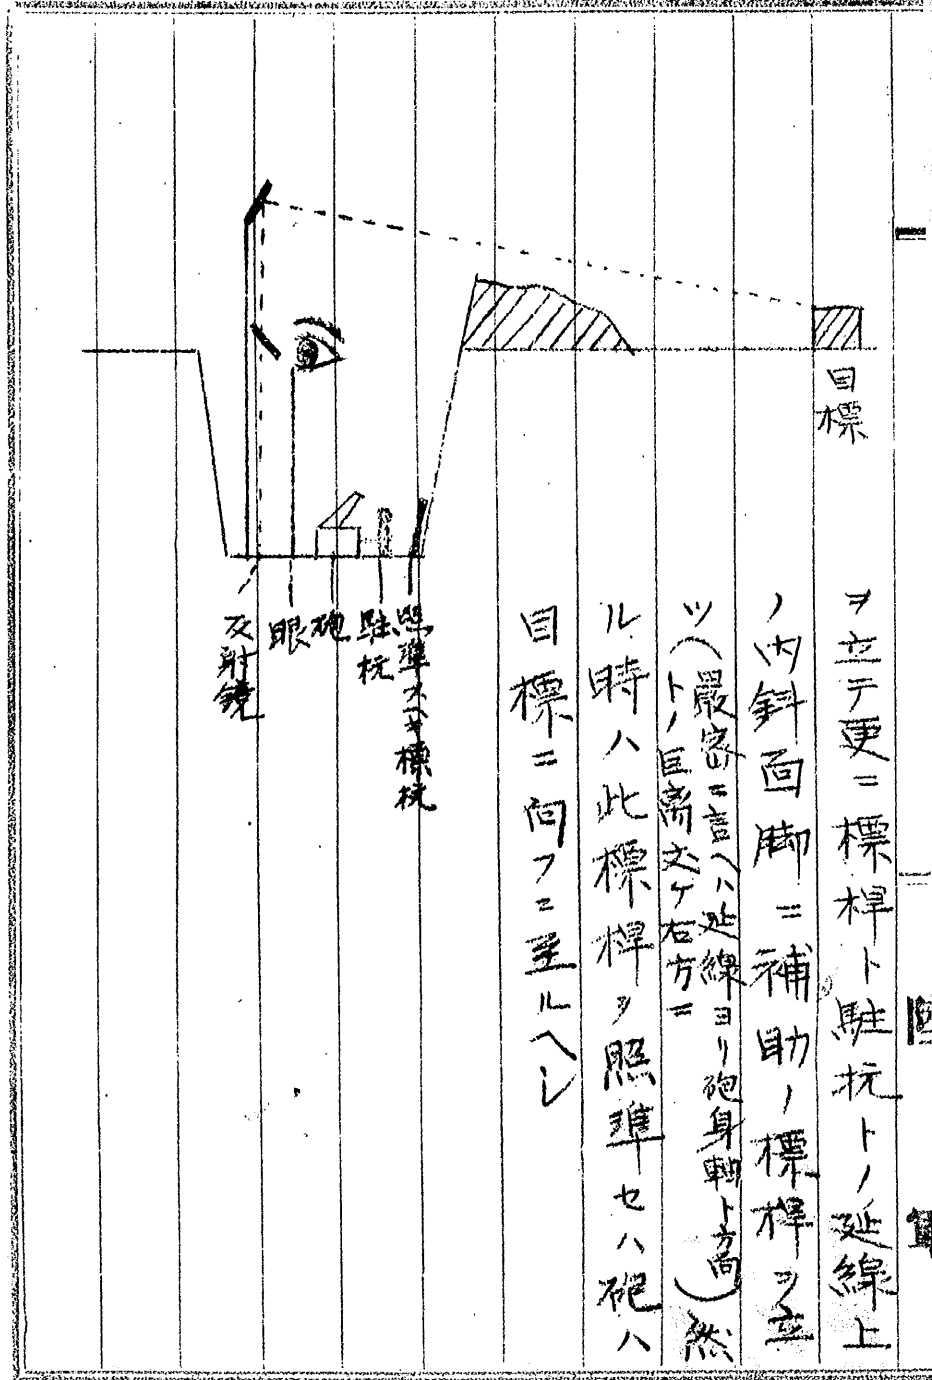 ヲ立テ更ニ標桿ト駐杭トノ延線上
ノ内斜面脚ニ補助ノ標桿ヲ立
ツ(最密ニ言ヘハ延線ヨリ砲身軸ト方向
トノ巨离丈ケ右方ニ)然
ル時ハ此標桿ヲ照準セハ砲ハ
目標ニ向フニ至ルヘシ
目標
照準スヘキ標杭
駐杭
砲
眼
反射鏡